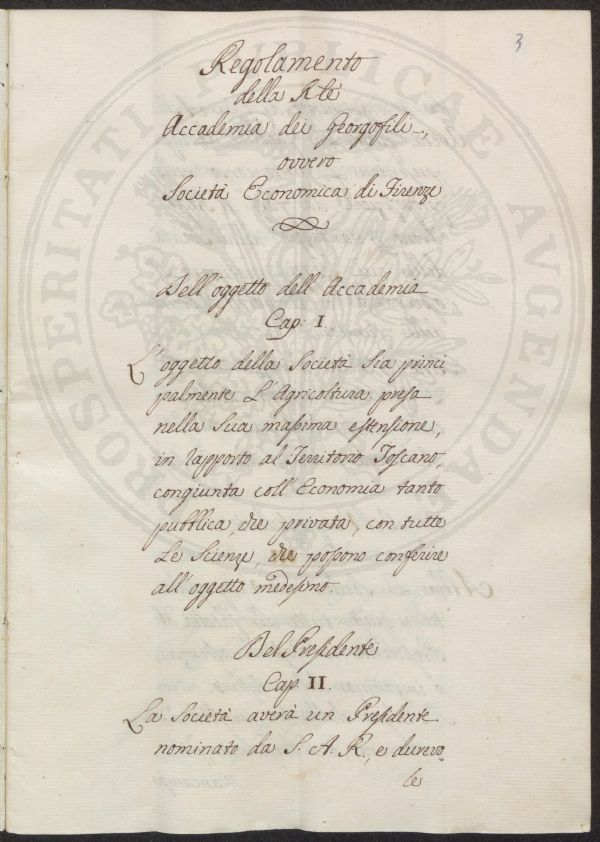 3
Regolamento
della Rle
Accademia dei Georgofili,
ovvero
Società Economica di Firenze
Dell'oggetto dell'Accademia
Cap: I.
L'oggetto della Società sia princi
palmente L'Agricoltura presa
nella Sua massima estensione,
in rapporto al Territorio Toscano,
congiunta coll'Economia tanto
pubblica, che privata, con tutte
Le Scienze, che possono conferire
all'oggetto medesimo.
Del Presidente
Cap. II.
La Società averà un Presidente
nominato da S. A. R., e durevo
le
PROSPERITATI PUBLICAE AVGENDAE